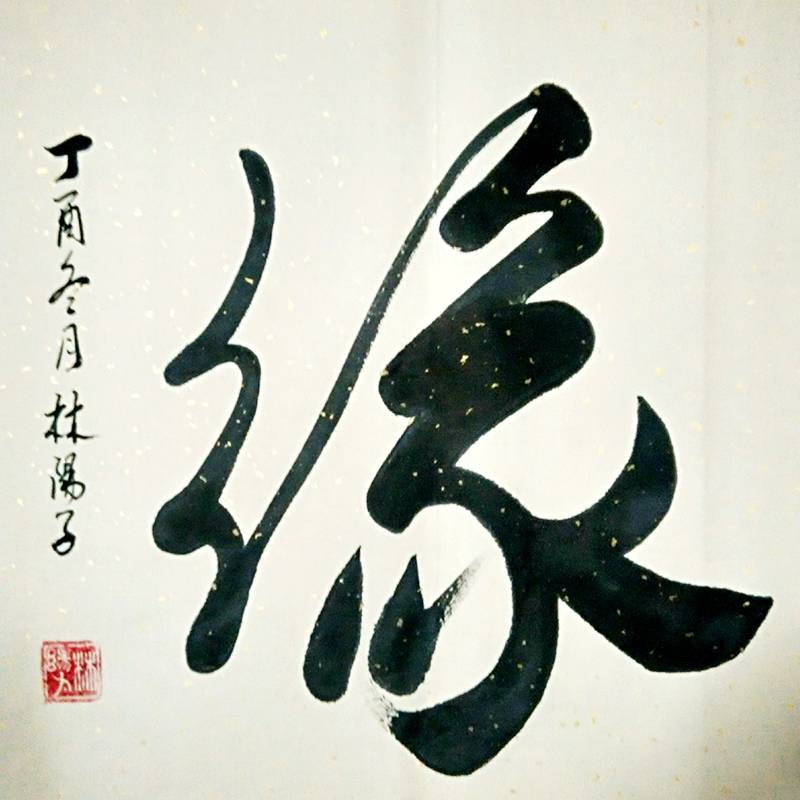 緣
丁酉冬月林陽子